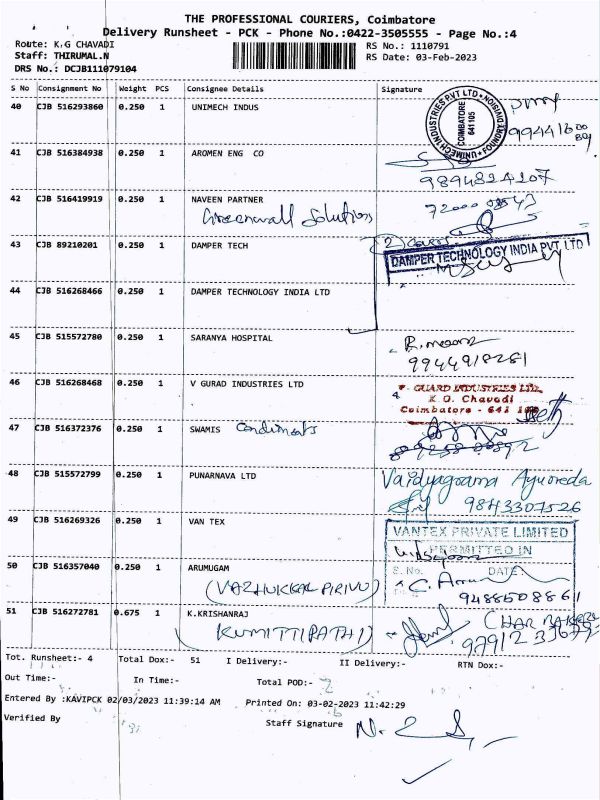 THE PROFESSIONAL COURIERS, Coimbatore
Delivery Runsheet - PCK - Phone No.:0422-3505555 - Page No.:4
Route: K.G CHAVADI
RS No.: 1110791
Staff: THIRUMAL.N
RS Date: 03-Feb-2023
DRS No.: DCJB111079104
S No Consignment No Weight PCS Consignee Details Signature
40 CJB 516293860 0.250 1 UNIMECH INDUS
UNIMECH INDUSTRIES PVT LTD
COIMBATORE
641 105
41 CJB 516384938 0.250 1 AROMEN ENG CO
9894824207
42 CJB 516419919 0.250 1 NAVEEN PARTNER
Greenwall Solutions
43 CJB 89210201 0.250 1 DAMPER TECH
DAMPER TECHNOLOGY INDIA PVT. LTD
44 CJB 516268466 0.250 1 DAMPER TECHNOLOGY INDIA LTD
45 CJB 515572780 0.250 1 SARANYA HOSPITAL
9944918281
46 CJB 516268468 0.250 1 V GURAD INDUSTRIES LTD
GUARD INDUSTRIES LTD.
K.G. Chavadi
Coimbatore - 641
47 CJB 516372376 0.250 1 SWAMIS Condiments
48 CJB 515572799 0.250 1 PUNARNAVA LTD
Vaidyagrama Ayurveda
9843307526
49 CJB 516269326 0.250 1 VAN TEX
VANTEX PRIVATE LIMITED
PERMITTED IN
S. No. DATE:
50 CJB 516357040 0.250 1 ARUMUGAM
(VAZHUKKAL PIRIVU)
9488508861
51 CJB 516272781 0.675 1 K.KRISHANRAJ
(KUMITTIPATHI)
Tot. Runsheet:- 4 Total Dox:- 51 I Delivery:- II Delivery:- RTN Dox:-
Out Time:- In Time:- Total POD:-
Entered By :KAVIPCK 02/03/2023 11:39:14 AM Printed On: 03-02-2023 11:42:29
Verified By Staff Signature